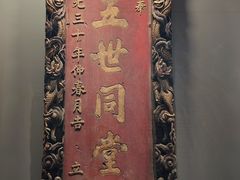 奉
五世同堂
元三十年仲春月吉立